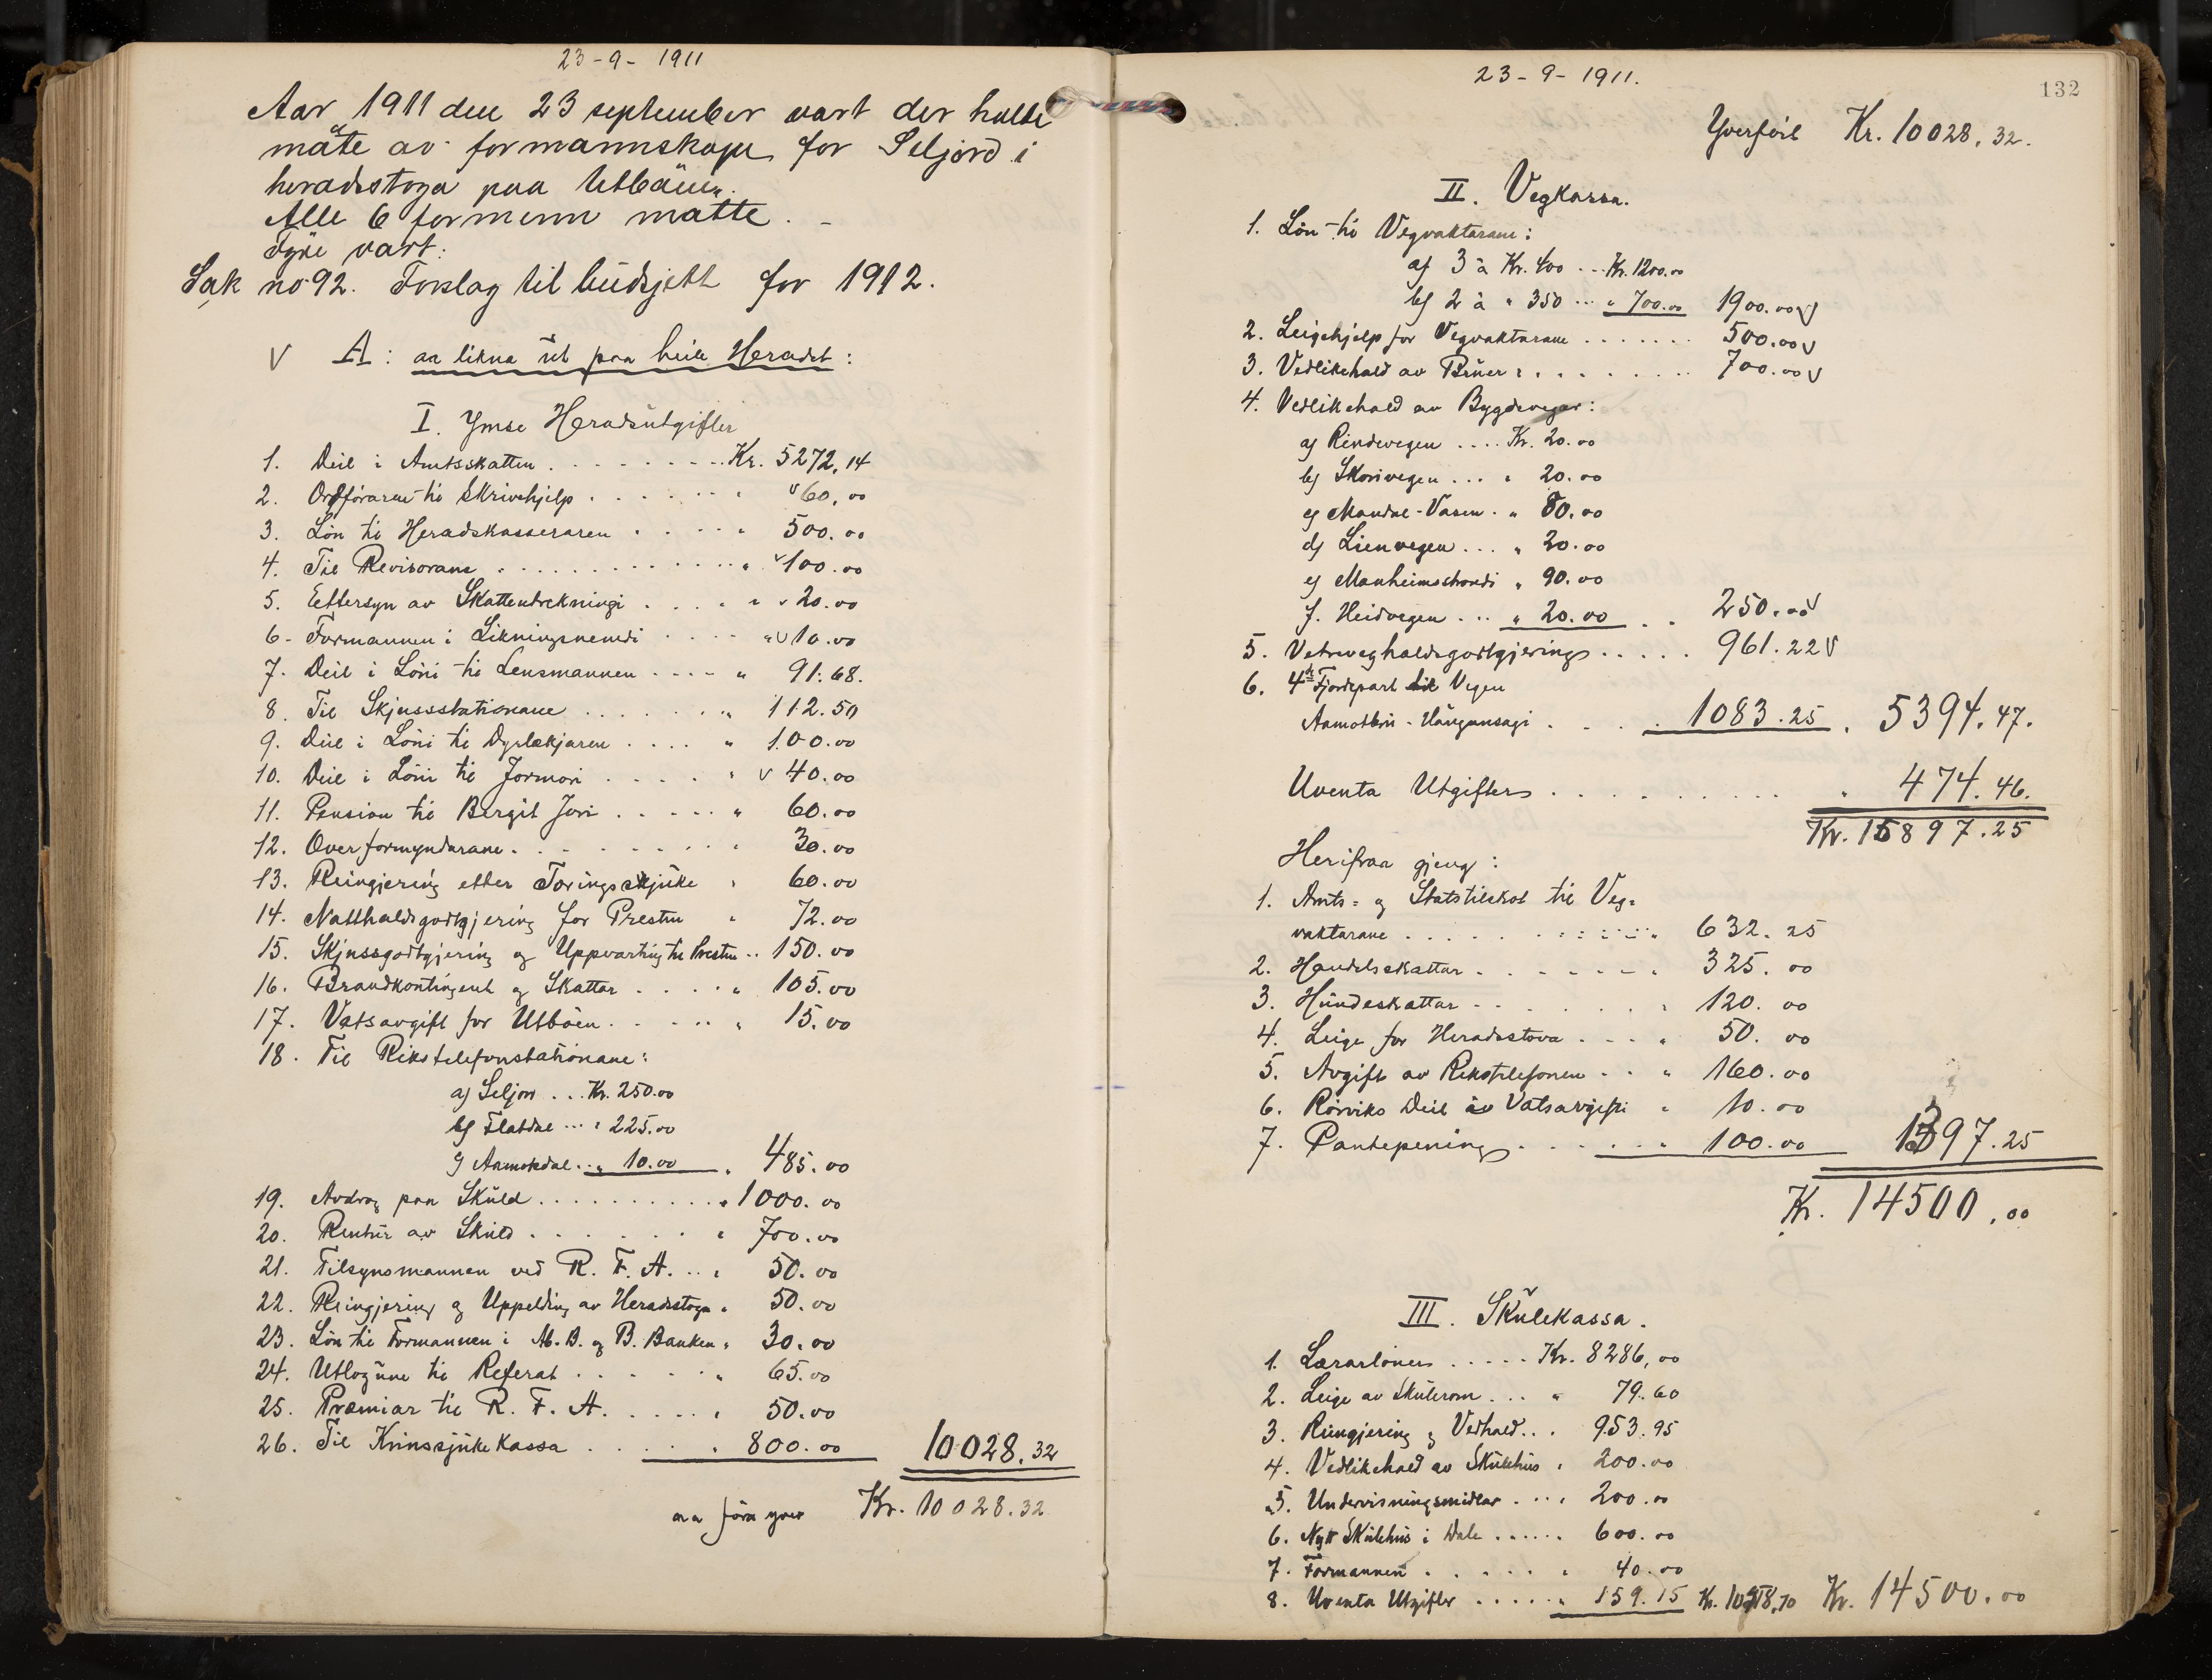 23-9-1911
Aar 1911 den 23 september vart der halde
møte av formannskape for Seljord i
heradstoga paa Utbøen.
Alle 6 formenn møtte. -
Fyre vart:
Sak no 92. Forslag til budsjett for 1912.
V A: aa likna ut paa heile Heradet:
I. Ymse Heradsutgifter
1. Deil i Amtsskatten . . . . . . . . Kr. 5272,14
2. Ordføraren ti Skrivehjelp . . . . . . " 60,00
3. Løn ti Heradskasseraren . . . . " 500.00
4. Til Revisorane . . . . . . . . . . . " 100.00
5. Eettersyn av Skatteutrekningi . . . . " 20.00
6- Formannen i Likningsnemdi . . . . " V 10.00
7. Deil i Løni ti Lensmannen . . . . " 91.68.
8. Til Skjussstationane . . . . . . . " 112.50
9. Deil i Løni ti Dyrlækjaren . . . . " 100.00
10. Deil i Løni til Jormori . . . . . " V 40.00
11. Pension ti Bergit Jori . . . . . " 60.00
12. Overformyndarane . . . . . . . . " 30.00
13. Reingjering etter Tæringssjuke " 60.00
14. Natthaldsgodtgjering for Presten " 72.00
15. Skjussgodtgjering og Uppvarting ti Presten .. 150.00
16. Brandkontingent og Skattar . . . . " 105.00
17. Vatsavgift for Utbøen . . . . . " 15.00
18. Til Rikstelefonstationane:
a) Seljor . . . Kr. 250.00
b) Flatdal . . . " 225.00
c) Aamotsdal . . " 10.00 " 485.00
19. Avdrag paa Skuld . . . . . . . . . . " 1000.00
20. Rentur av Skuld . . . . . . . " 700.00
21. Tilsynsmannen ved R. F. A. . . " 50.00
22. Reingjering og Uppelding av Heradstoga " 50.00
23. Løn til Formannen i A. B. og B. Banken " 30.00
24. Utlogune ti Referat . . . . . " 65.00
25. Premiar til R. F. A. . . . . . " 50.00
26. Til Krinssjukekassa . . . . . " 800.00 10028,32
aa føra yver Kr. 10028.32
23-9-1911.
132
Yverført Kr. 10028,32.
II. Vegkassa.
1. Løn ti Vegvaktarane:
a) 3 à Kr. 400 . . . Kr. 1200.00
b) 2 à " 350 . . . " 700.00 1900.00 V
2. Leigehjelp for Vegvaktarane . . . . . . . 500.00 V
3. Vedlikehald av Bruer : . . . . . . . . 700.00 V
4. Vedlikehald av Bygdevegar:
a) Rindevegen . . . . Kr. 20.00
b) Skorivegen . . . " 20.00
c) Mandal-Vasen . " 80.00
d) Lienvegen . . . " 20.00
e) Manheimsstrondi " 90.00
f. Heidvegen . . . " 20.00 . . 250.00 V
5. Vetreveghaldsgodtgjering . . . . . 961.22 V
6. 4de Fjordepart til Vegen
Aamotbru - Haugansagi . . . . 1083.25 . 5394.47.
Uventa Utgifter . . . . . . . . . " 474.46.
Kr. 15897.25
Herifraa gjeng:
1. Amts= og Statstilskot til Veg=
vaktarane . . . . . . . . . . " 632.25
2. Handelsskattar . . . . . . . " 325.00
3. Hundeskattar . . . . . . . " 120.00
4. Leige for Heradsstova . . . " 50.00
5. Avgift av Rikstelefonen . . " 160.00
6. Rørviks Deil av Vatsavgifti " 10.00
7. Pantepening . . . . . . " 100.00 1397.25
Kr. 14500,00
III. Skulekassa.
1. Lærarløner . . . . . Kr. 8286,00
2. Leige av Skulerom . . . " 79.60
3. Reingjering og Vedhald . . . 953.95
4. Vedlikehald av Skulehus " 200.00
5. Undervisningsmidlar . . . " 200.00
6. Nytt Skulehus i Dale . . . . . . 600.00
7. Formannen . . . . . . " 40.00
8. Uventa Utgifter . . . . . " 159.15 Kr. 10518,70 Kr. 14500.00